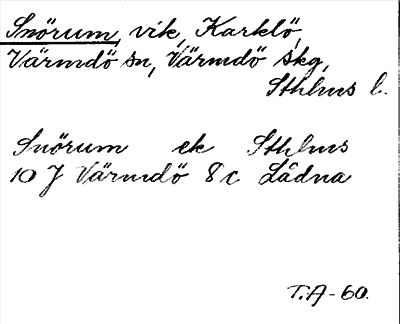 Snörum, vik, Karklö,
Värmdö sn, Värmdö skg,
Sthlms l.
Snörum ek Sthlms
10 J Värmdö 8 c Lådna
T.A-60.